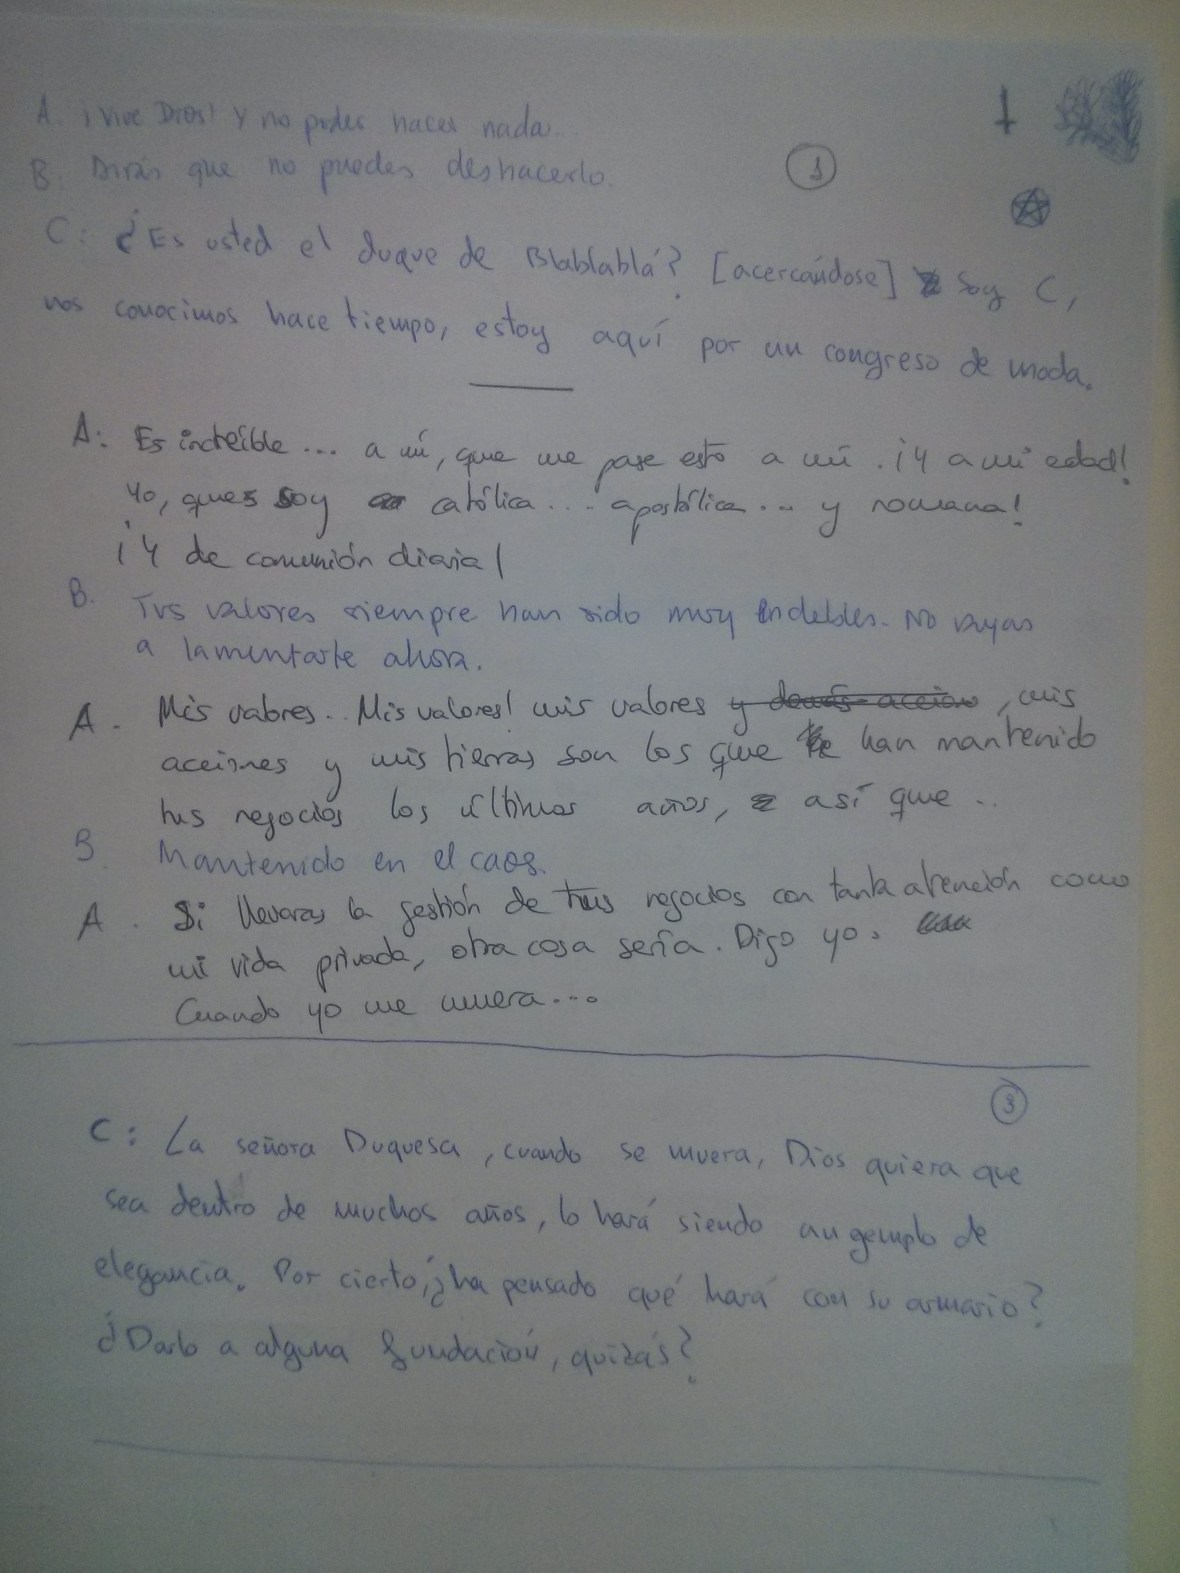 A. ¡Vive Dios! Y no poder hacer nada...
B: Dirás que no puedes deshacerlo.
1
C: ¿Es usted el duque de Blablablá? [acercándose] Soy C,
nos conocimos hace tiempo, estoy aquí por un congreso de moda.
A: Es increíble... a mí, que me pase esto a mí. ¡Y a mi edad!
Yo, que soy católica... apostólica... y romana!
¡Y de comunión diaria!
B. Tus valores siempre han sido muy endebles. No vayas
a lamentarte ahora.
A. Mis valores.. Mis valores! mis valores , mis
acciones y mis tierras son los que han mantenido
tus negocios los últimos años, así que ..
B. Mantenido en el caos.
A. Si llevaras la gestión de tus negocios con tanta atención como
mi vida privada, otra cosa sería. Digo yo.
Cuando yo me muera...
3
C: La señora Duquesa, cuando se muera, Dios quiera que
sea dentro de muchos años, lo hará siendo un gemplo de
elegancia. Por cierto, ¿ha pensado qué hará con su armario?
¿Darlo a alguna fundación, quizás?